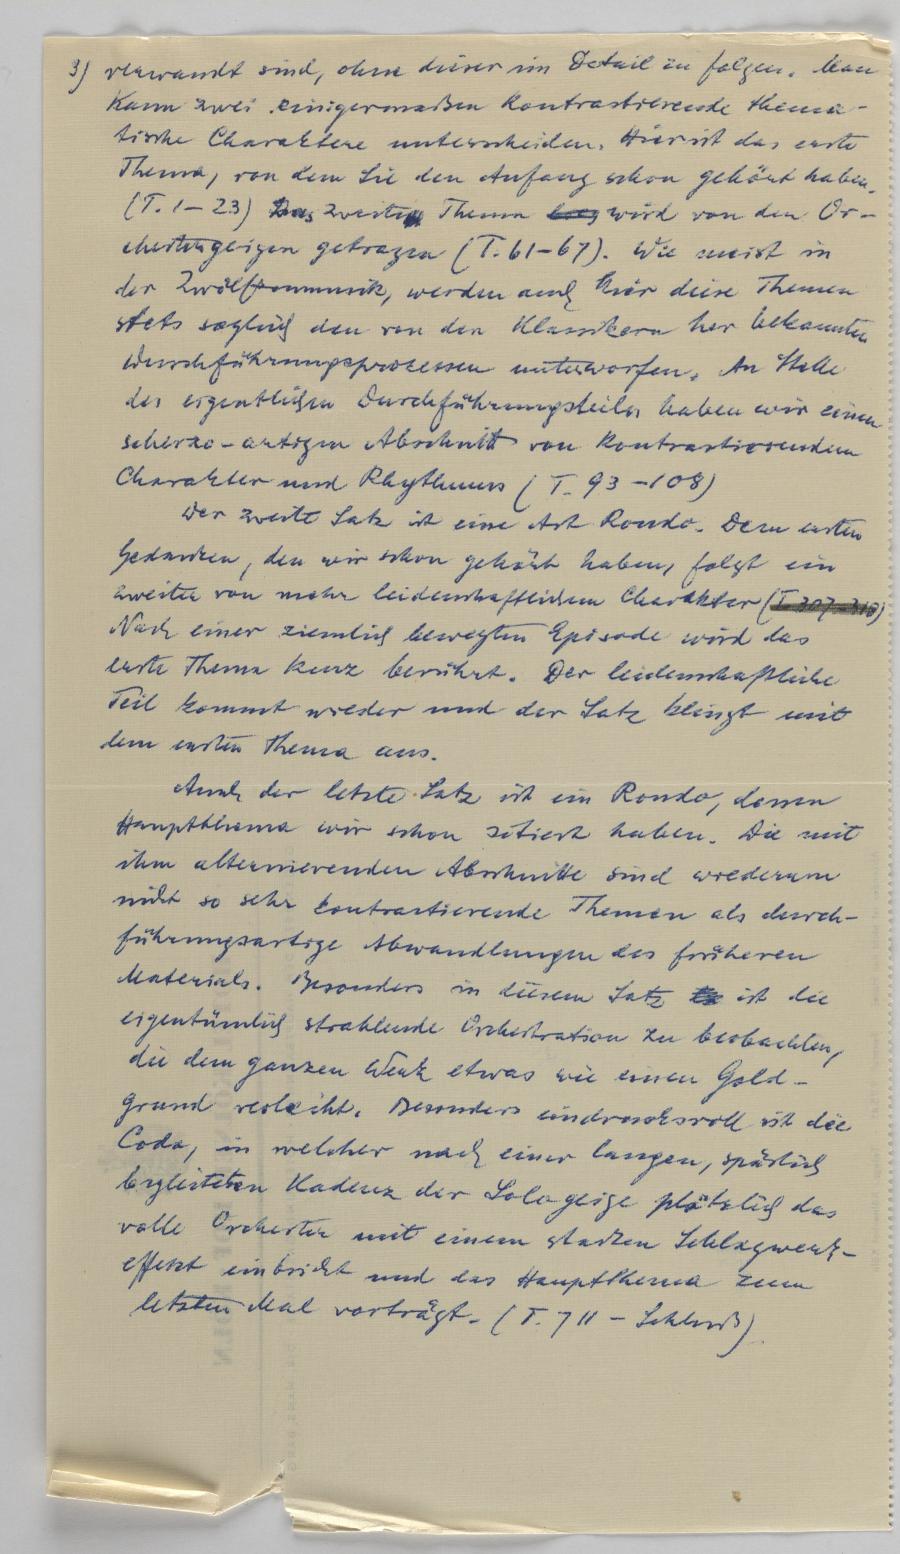 3) verwandt sind, ohne dieser im Detail zu folgen. Man
kann zwei einigermaßen kontrastierende thema-
tische Charaktere unterscheiden. Hier ist das erste
Thema, von dem Sie den Anfang schon gehört haben.
(T. 1–23) Das zweite Thema wird von den Or-
chestergeigen getragen (T. 61–67). Wie meist in
der Zwölftonmusik, werden auch hier diese Themen
stets sogleich den von den Klassikern her bekannten
Durchführungsprozessen unterworfen. An Stelle
des eigentlichen Durchführungsteiles haben wir einen
scherzo-artigen Abschnitt von kontrastierendem
Charakter und Rhythmus (T. 93–108)
Der zweite Satz ist eine Art Rondo. Dem ersten
Gedanken, den wir schon gehört haben, folgt ein
zweiter von mehr leidenschaftlichem Charakter (T. 307–318)
Nach einer ziemlich bewegten Episode wird das
erste Thema kurz berührt. Der leidenschaftliche
Teil kommt wieder und der Satz klingt mit
dem ersten Thema aus.
Auch der letzte Satz ist ein Rondo, dessen
Hauptthema wir schon zitiert haben. Die mit
ihm alternierenden Abschnitte sind wiederum
nicht so sehr kontrastierende Themen als durch-
führungsartige Abwandlungen des früheren
Materials. Besonders in diesem Satz ist die
eigentümlich strahlende Orchestration zu beobachten,
die dem ganzen Werk etwas wie einen Gold-
grund verleiht. Besonders eindrucksvoll ist die
Coda, in welcher nach einer langen, spärlich
begleiteten Kadenz der Sologeige plötzlich das
volle Orchester mit einem starken Schlagwerk-
effekt einbricht und das Hauptthema zum
letzten Mal vorträgt. (T. 711 – Schluß)